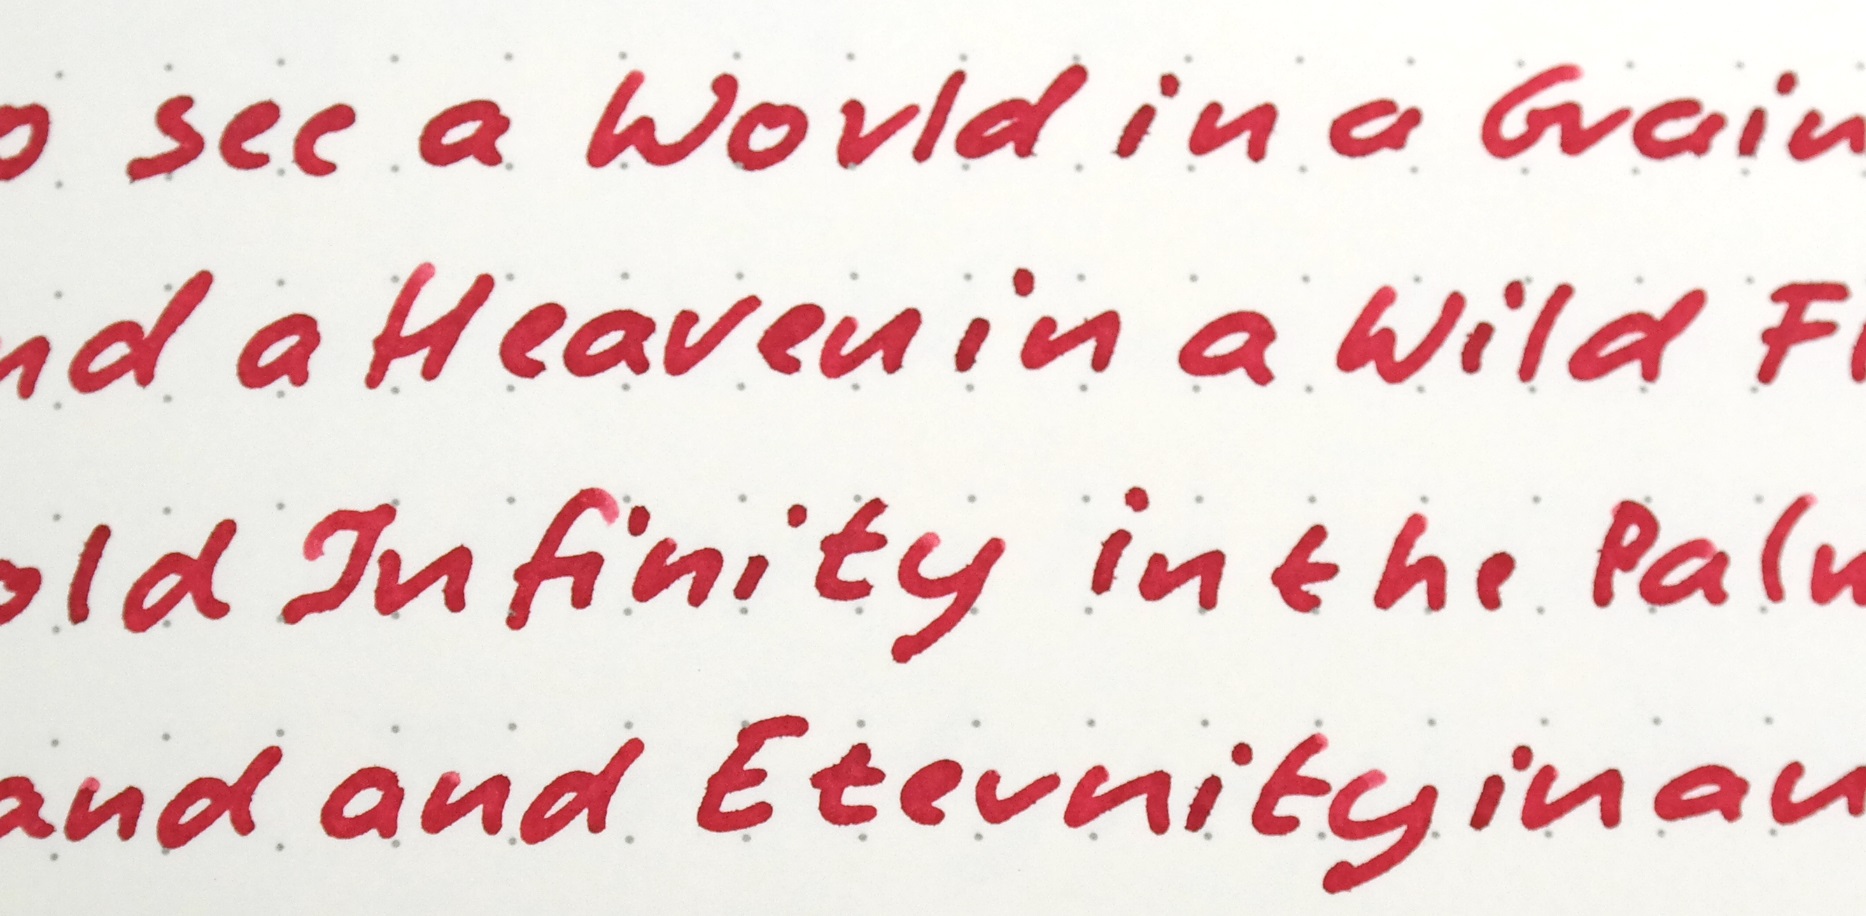 o see a World in a Grain
nd a Heaven in a Wild Fl
old Infinity in the Palm
and and Eternity in an